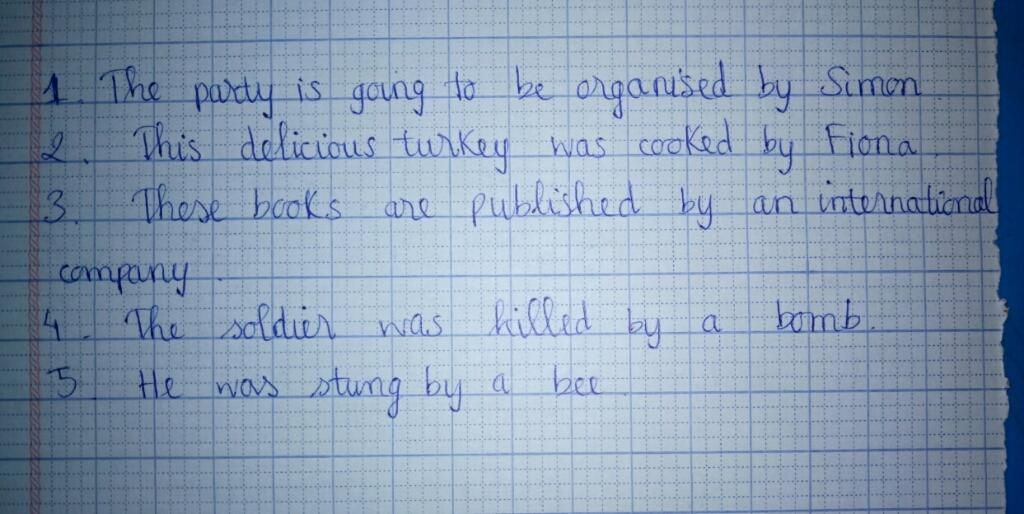 1. The party is going to be organised by Simon.
2. This delicious turkey was cooked by Fiona.
3. These books are published by an international
company.
4. The soldier was killed by a bomb.
5. He was stung by a bee.